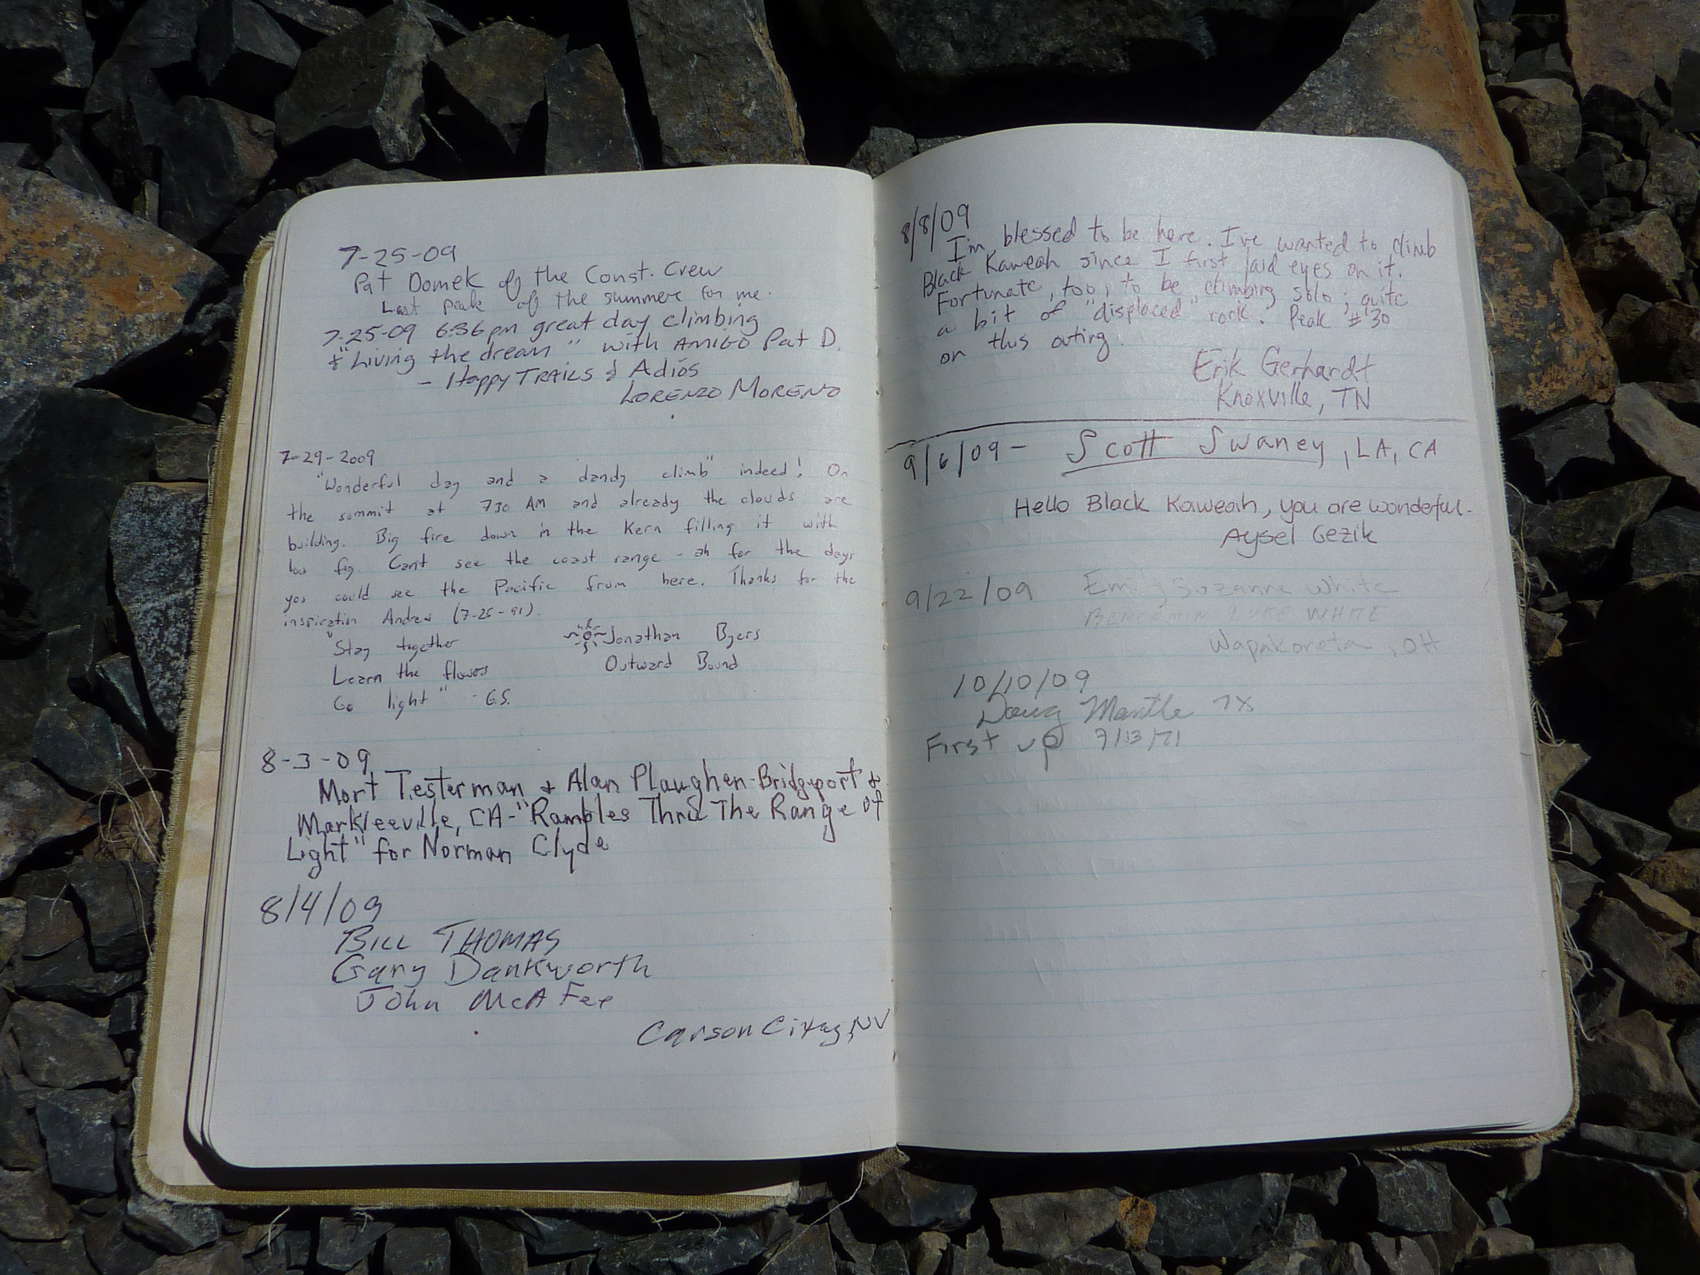 7-25-09
Pat Domek of the Const. Crew
Last peak of the summer for me.
7-25-09 6:36 pm great day climbing
& "Living the dream" with AMIGO Pat D.
- Happy TRAILS & Adiós
LORENZO MORENO
7-29-2009
"Wonderful day and a dandy climb" indeed! On
the summit at 730 AM and already the clouds are
building. Big fire down in the Kern filling it with
low fog. Cant see the coast range - ah for the days
you could see the Pacific from here. Thanks for the
inspiration Andrew (7-25-91).
"Stay together
Learn the flowers
Go light" - G.S.
Jonathan Byers
Outward Bound
8-3-09
Mort Testerman & Alan Plaughen-Bridgeport &
Markleeville, CA-"Rambles Thru The Range Of
Light" for Norman Clyde
8/4/09
BILL THOMAS
Gary Dankworth
John McAFee
Carson City, NV
8/8/09
I'm blessed to be here. I've wanted to climb
Black Kaweah since I first laid eyes on it.
Fortunate, too, to be climbing solo; quite
a bit of "displaced" rock. Peak #30
on this outing.
Erik Gerhardt
Knoxville, TN
9/6/09 - Scott Swaney, LA, CA
Hello Black Kaweah, you are wonderful.
Aysel Gezik
9/22/09 Emily Suzanne White
BENJAMIN LUKE WHITE
Wapakoneta, OH
10/10/09
Doug Mantle 7x
First up 9/13/71